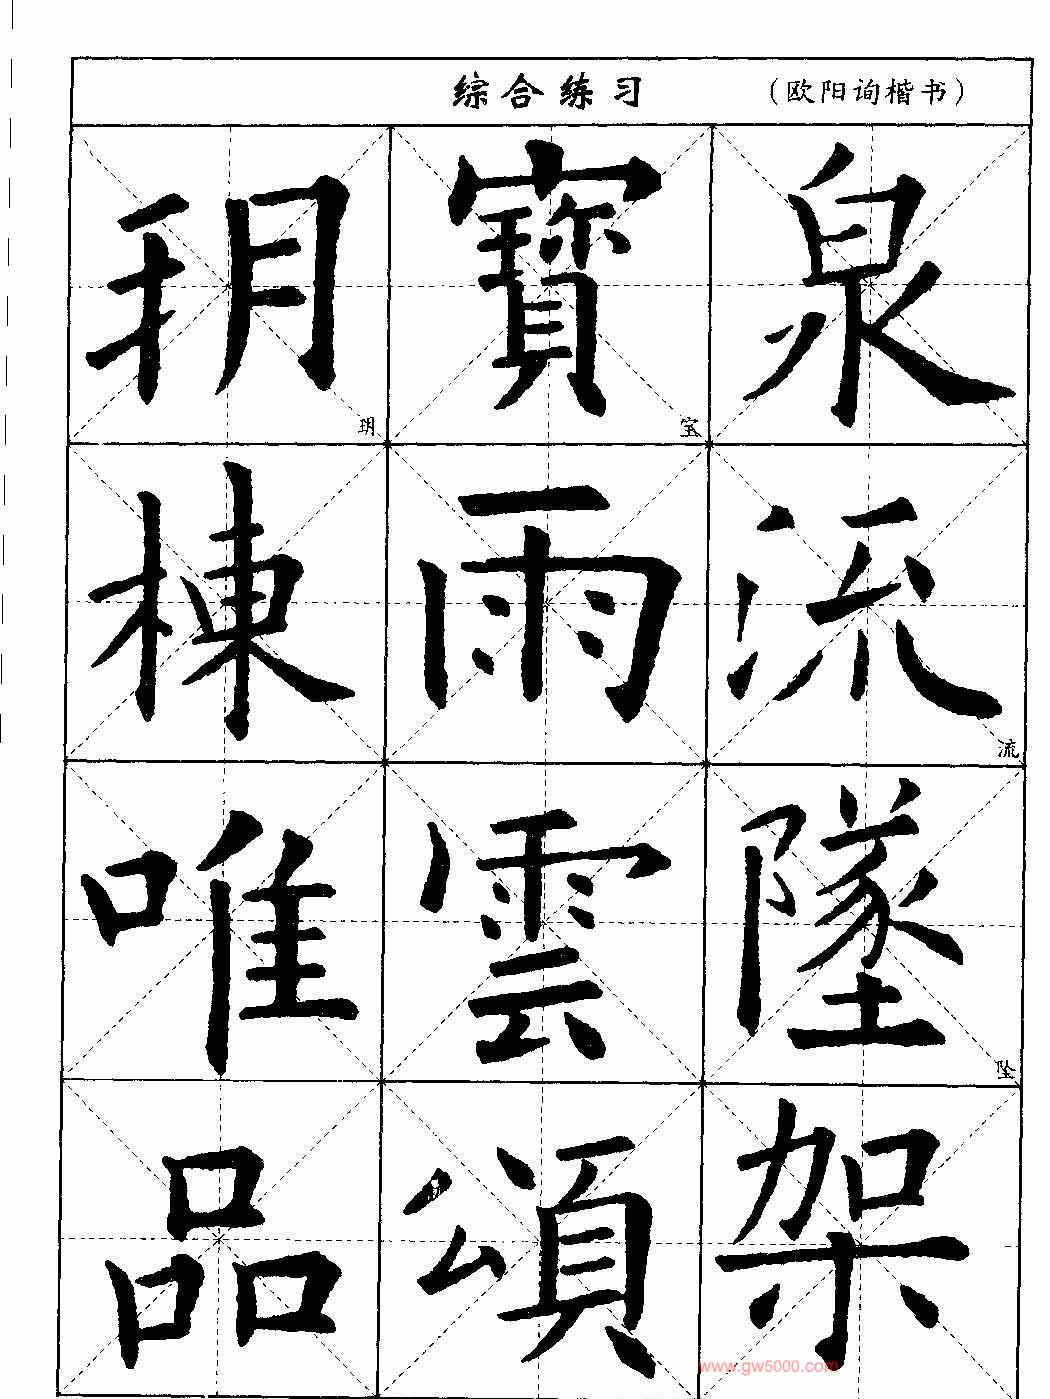 综合练习 （欧阳询楷书）
玥 寶 泉
玥 宝
棟 雨 流
流
唯 雲 墜
坠
品 頌 架
www.gw5000.com